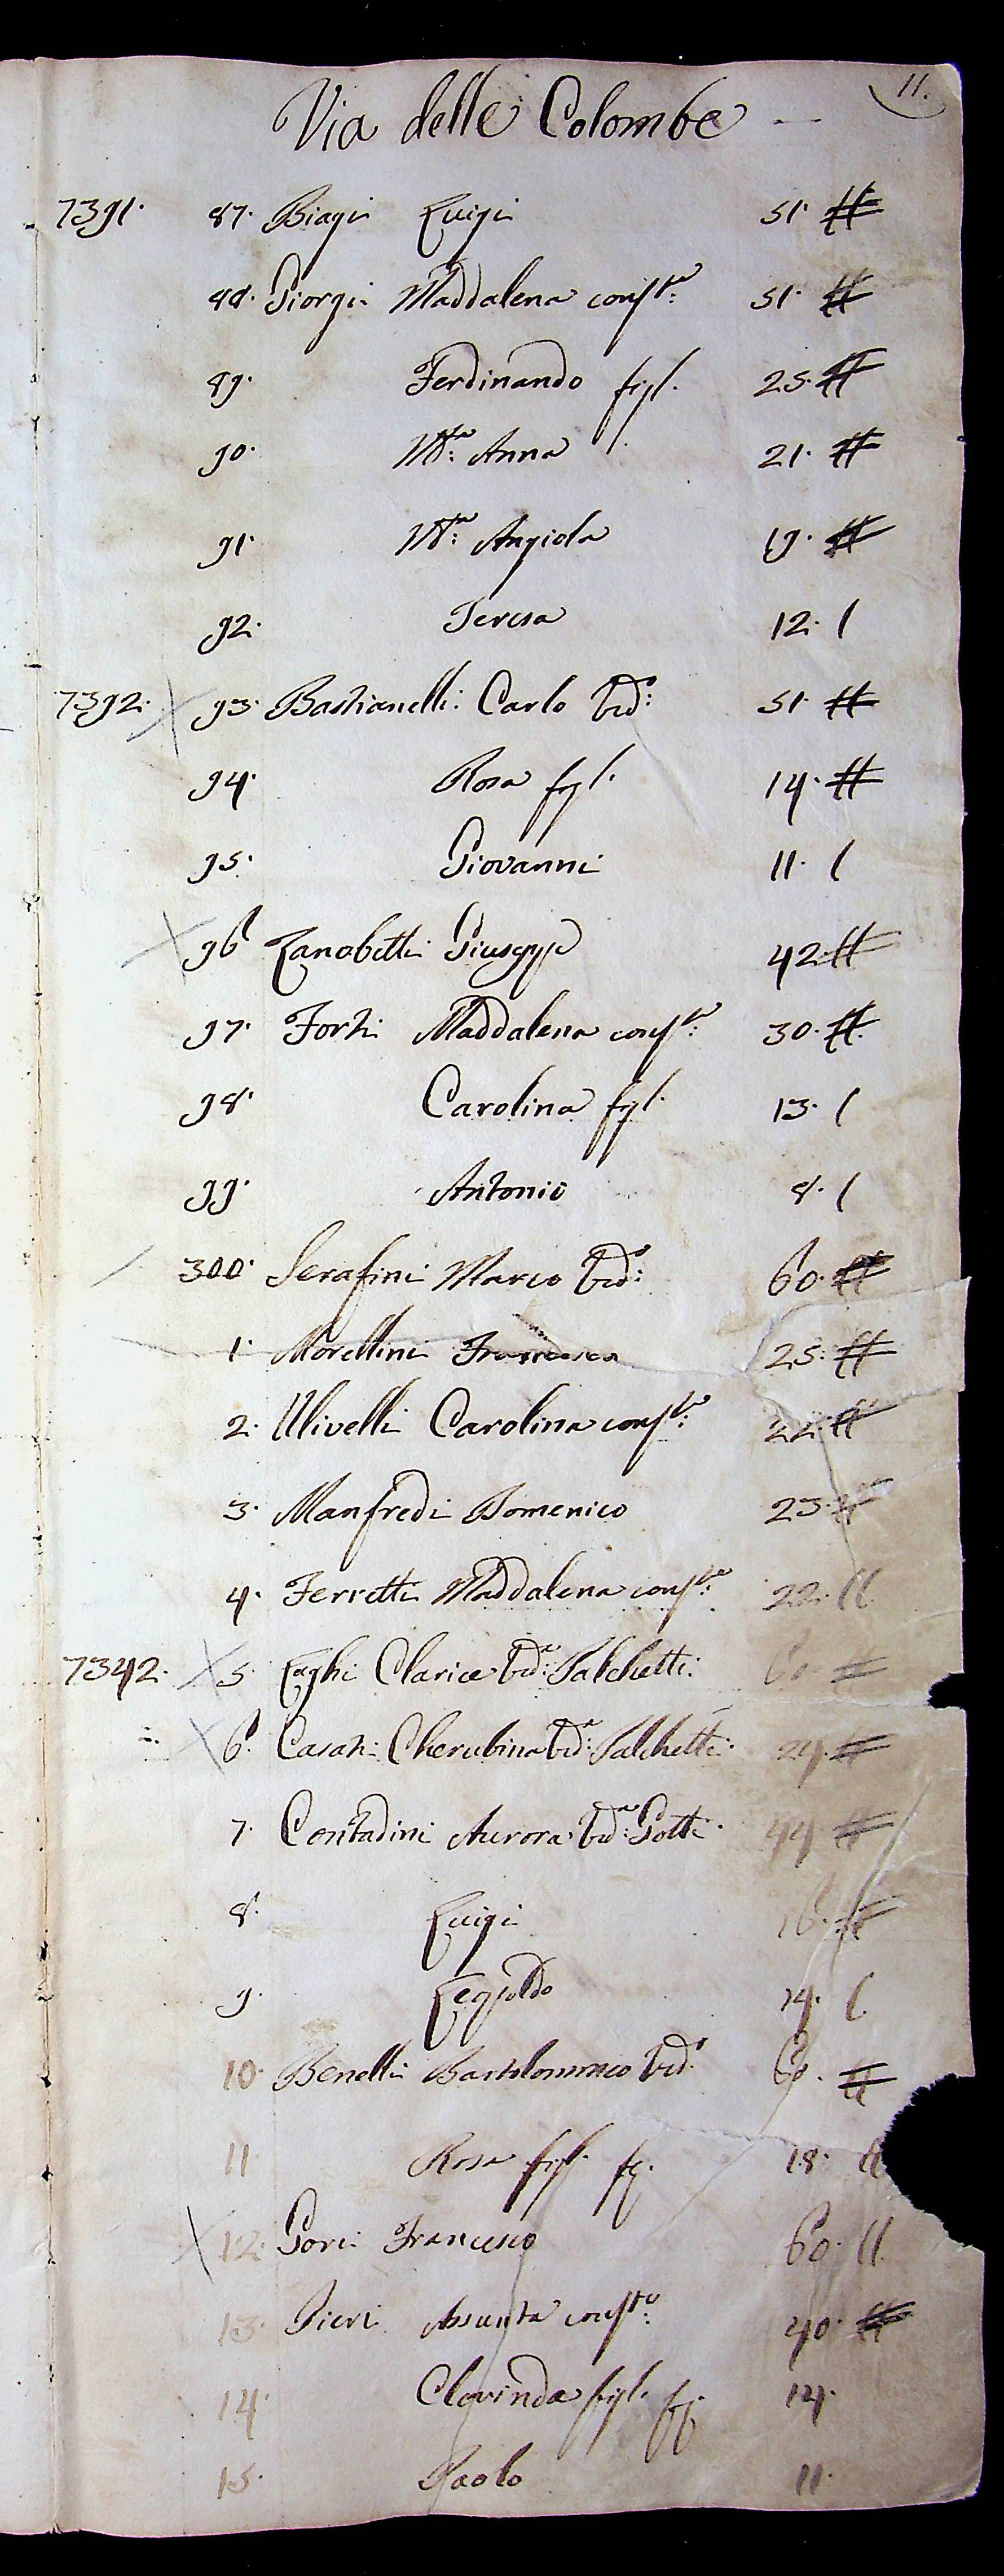 11.
Via delle Colombe —
7391. 87. Biagi Luigi 51. #
88. Giorgi Maddalena consta: 51. #
89. Ferdinando figl. 25. #
90. Ma: Anna 21. #
91. Ma: Angiola 19. #
92. Teresa 12. (
7392. 93. Bastianelli Carlo Vdo: 51. #
94. Rosa figl. 14. #
95. Giovanni 11. (
96 Zanobetti Giuseppe 42 #
97. Forti Maddalena consta: 30. #
98. Carolina figl. 13. (
99. Antonio 8. (
300. Serafini Marco Vdo: 60. #
1. Morellini Francesca 25. #
2. Ulivelli Carolina consta: 22. #
3. Manfredi Domenico 23. #
4. Ferretti Maddalena consta: 22. ((
7342. 5. Laghi Clarice Vda: Salchetti. 60 #
6. Casati Cherubina Vda: Salchetti. 29. #
7. Contadini Aurora Vda: Gotti. 44 #
8. Luigi 16. #
9. Legoldo 14. (
10. Benelli Bartolommeo Vdo. 60. #
11 Rosa figl. fg. 18. #
12. Gori Francesco 60. ((
13. Pieri Assunta consta: 40. #
14. Clorinda figl. fg. 14.
15. Paolo 11.